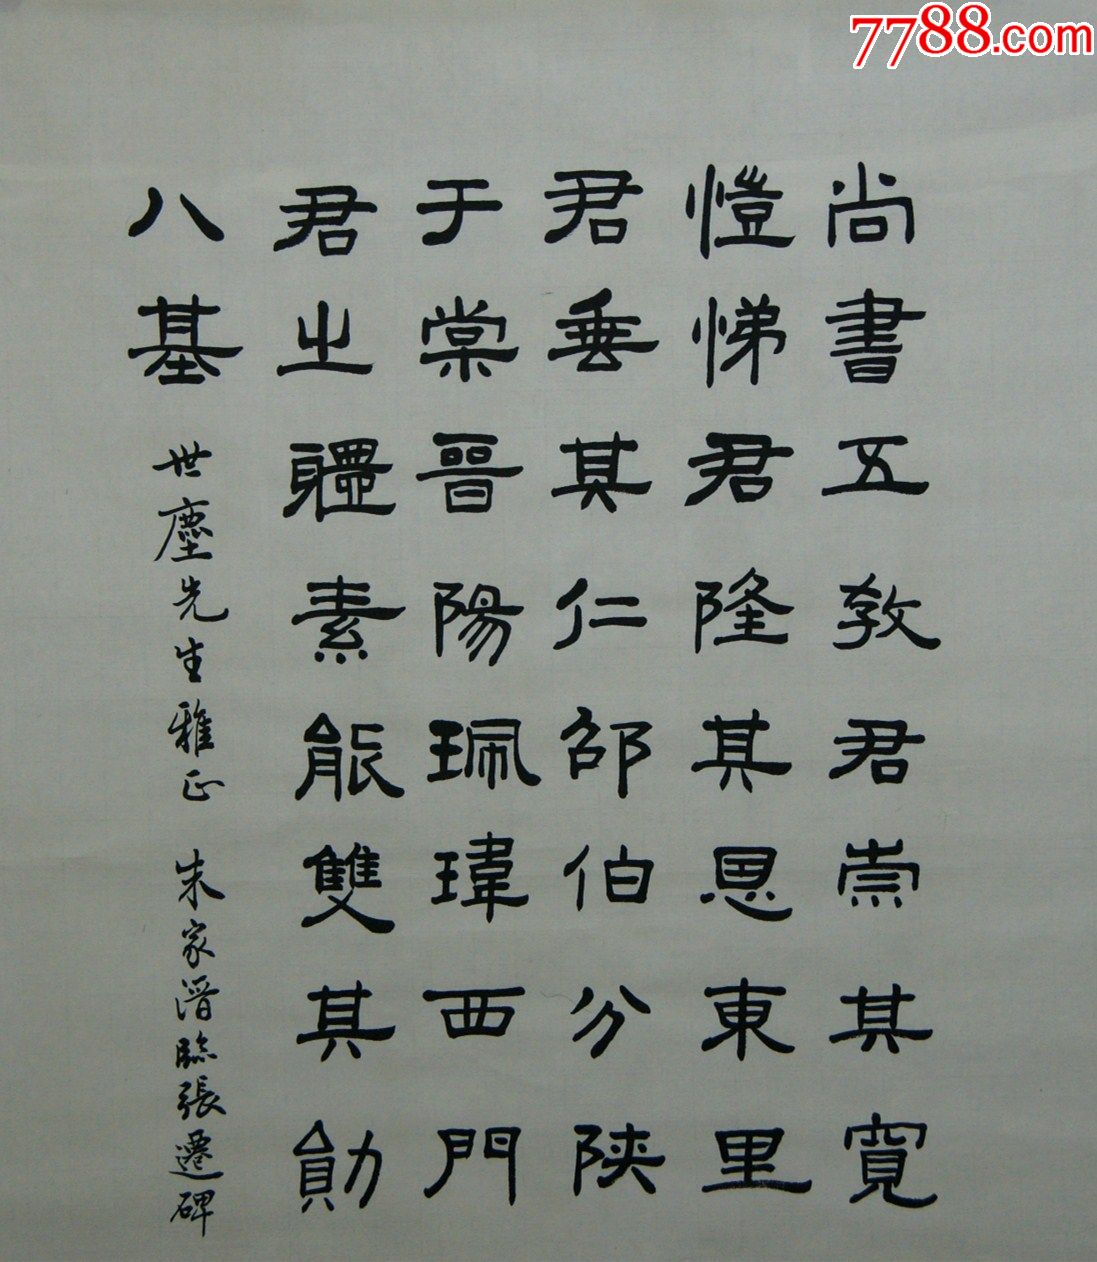 7788.com
尚書五教君崇其寛
愷悌君隆其恩東里
君垂其仁邵伯分陕
于棠晉陽珮瑋西門
君之軆素能雙其勛
八基
世塵先生雅正 朱家溍臨張遷碑